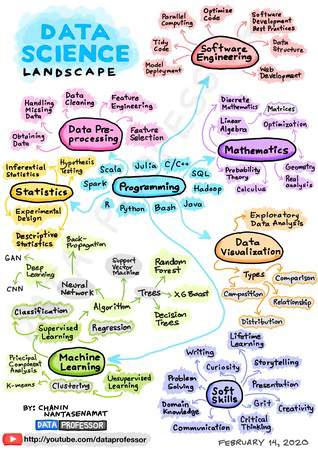 DATA
SCIENCE
LANDSCAPE
Parallel
Computing
Optimize
Code
Software
Development
Best Practices
Tidy
Code
Data
Structure
Model
Deployment
Web
Development
Software
Engineering
Handling
Missing
Data
Data
Cleaning
Feature
Engineering
Obtaining
Data
Feature
Selection
Data Pre-
processing
Discrete
Mathematics
Matrices
Linear
Algebra
Optimization
Mathematics
Probability
Theory
Calculus
Geometry
Real
analysis
Inferential
Statistics
Hypothesis
Testing
Statistics
Experimental
Design
Descriptive
Statistics
Scala
Julia
C/C++
SQL
Spark
Programming
Hadoop
R
Python
Bash
Java
Exploratory
Data Analysis
Data
Visualization
Types
Comparison
Composition
Relationship
Distribution
Back-
Propagation
GAN
Deep
Learning
CNN
Neural
Network
Support
Vector
Machine
Random
Forest
Trees
XG Boost
Decision
Trees
Classification
Algorithm
Supervised
Learning
Regression
Principal
Component
Analysis
Machine
Learning
K-means
Clustering
Unsupervised
Learning
Lifetime
Learning
Writing
Curiosity
Storytelling
Problem
Solving
Presentation
Soft
Skills
Domain
Knowledge
Grit
Creativity
Communication
Critical
Thinking
BY: CHANIN
NANTASENAMAT
DATA PROFESSOR
http://youtube.com/dataprofessor
FEBRUARY 14, 2020